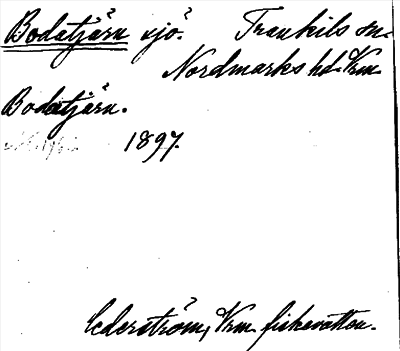 Bodatjärn sjö. Trankils sn.
Nordmarks hd. Vrm.
Bodatjärn.
1897.
Cederström, Vrm. fiskevatten.